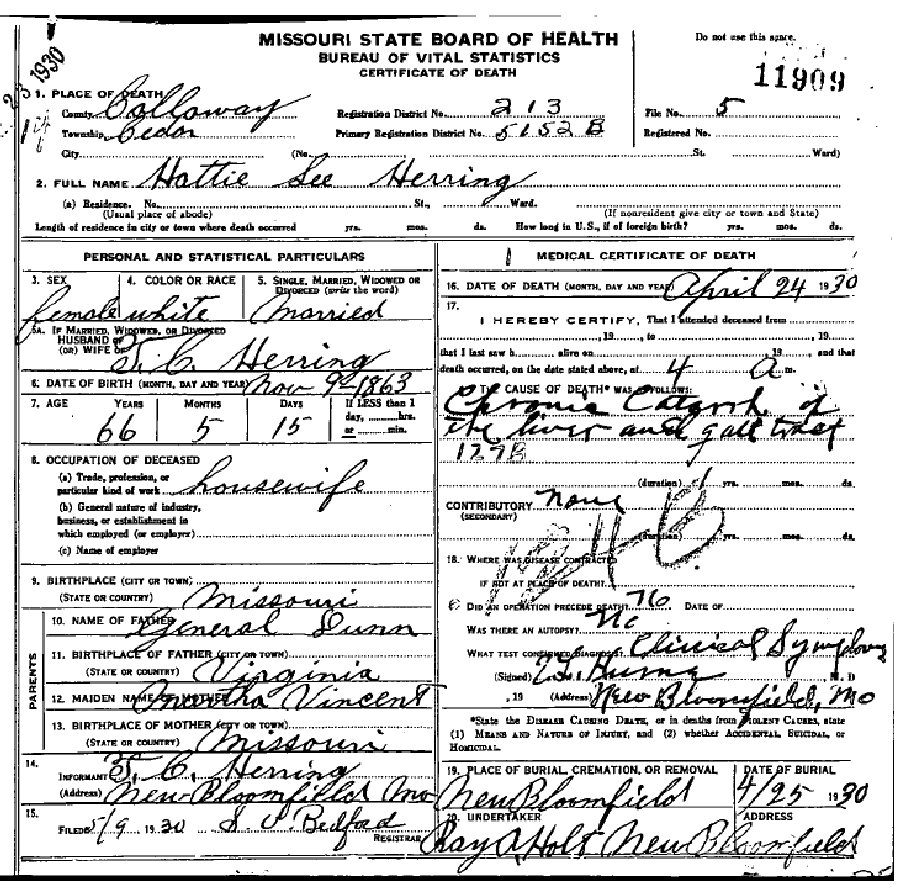 MISSOURI STATE BOARD OF HEALTH
BUREAU OF VITAL STATISTICS
CERTIFICATE OF DEATH
Do not use this space.
11909
1930
1. PLACE OF DEATH
County Callaway Registration District No. 213 File No. 5
Township Cedar Primary Registration District No. 5152 B Registered No.
City (No. St. Ward)
2. FULL NAME Hattie Lee Herring
(a) Residence. No. St., Ward.
(Usual place of abode) (If nonresident give city or town and State)
Length of residence in city or town where death occurred yrs. mos. ds. How long in U.S., if of foreign birth? yrs. mos. ds.
PERSONAL AND STATISTICAL PARTICULARS
3. SEX 4. COLOR OR RACE 5. SINGLE, MARRIED, WIDOWED OR
DIVORCED (write the word)
female white Married
5A. IF MARRIED, WIDOWED, OR DIVORCED
HUSBAND OF
(OR) WIFE OF T. C. Herring
6. DATE OF BIRTH (MONTH, DAY AND YEAR) Nov 9-1863
7. AGE YEARS MONTHS DAYS If LESS than 1
day, hrs.
or min.
66 5 15
8. OCCUPATION OF DECEASED
(a) Trade, profession, or
particular kind of work housewife
(b) General nature of industry,
business, or establishment in
which employed (or employer)
(c) Name of employer
9. BIRTHPLACE (CITY OR TOWN)
(STATE OR COUNTRY) Missouri
PARENTS
10. NAME OF FATHER General Dunn
11. BIRTHPLACE OF FATHER (CITY OR TOWN)
(STATE OR COUNTRY) Virginia
12. MAIDEN NAME OF MOTHER Martha Vincent
13. BIRTHPLACE OF MOTHER (CITY OR TOWN)
(STATE OR COUNTRY) Missouri
14.
INFORMANT T. C. Herring
(Address) New Bloomfield Mo
15.
FILED 5/9 1930 Bedford
REGISTRAR
MEDICAL CERTIFICATE OF DEATH
16. DATE OF DEATH (MONTH, DAY AND YEAR) April 24 1930
17.
I HEREBY CERTIFY, That I attended deceased from
, 19 , to , 19
that I last saw h alive on , 19 , and that
death occurred, on the date stated above, at 4 A m.
THE CAUSE OF DEATH* WAS AS FOLLOWS:
Chronic Catarrh of
the liver and gall tract
127B
(duration) 1 yrs. mos. ds.
CONTRIBUTORY None
(SECONDARY)
(duration) yrs. mos. ds.
18. WHERE WAS DISEASE CONTRACTED
IF NOT AT PLACE OF DEATH?
DID AN OPERATION PRECEDE DEATH? No DATE OF
WAS THERE AN AUTOPSY? No
WHAT TEST CONFIRMED DIAGNOSIS? Clinical Symptoms
(Signed) M. D.
, 19 (Address) New Bloomfield, Mo
*State the DISEASE CAUSING DEATH, or in deaths from VIOLENT CAUSES, state
(1) MEANS AND NATURE OF INJURY, and (2) whether ACCIDENTAL SUICIDAL, or
HOMICIDAL.
19. PLACE OF BURIAL, CREMATION, OR REMOVAL DATE OF BURIAL
New Bloomfield 4/25 1930
20. UNDERTAKER ADDRESS
Ray A Holt New Bloomfield